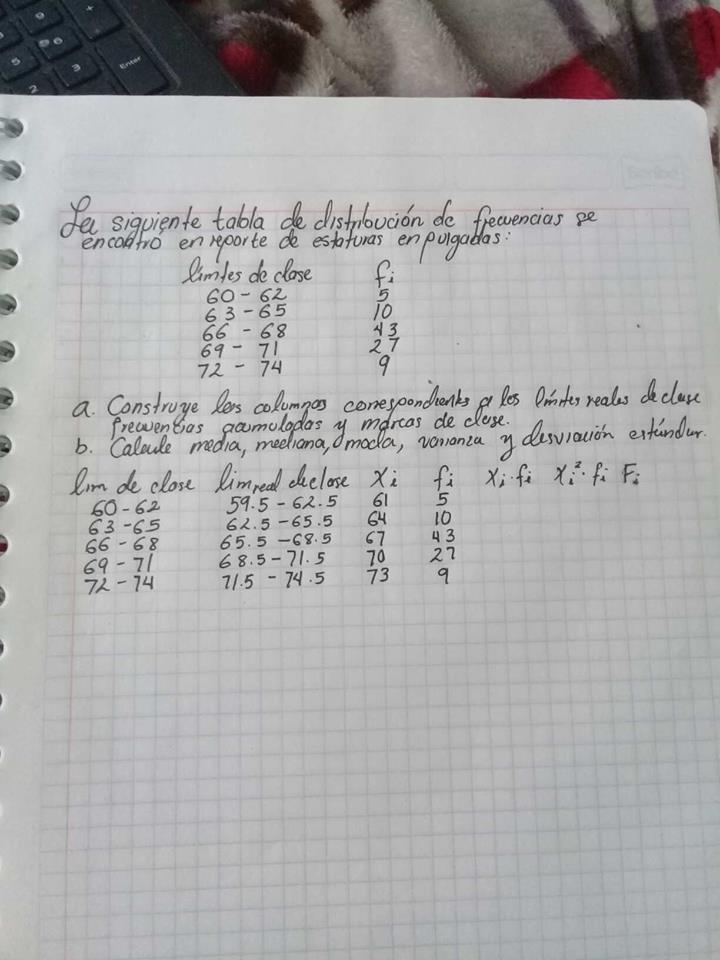 La siguiente tabla de distribución de frecuencias se
encontro en reporte de estaturas en pulgadas:
límites de clase fi
60 - 62 5
63 - 65 10
66 - 68 43
69 - 71 27
72 - 74 9
a. Construye las columnas correspondients a los límites reales de clase
frecuencias acumuladas y marcas de clase.
b. Calcule media, mediana, moda, varianza y desviación estándar.
lim de clase lim real de clase Xi fi Xi·fi Xi²·fi Fi
60-62 59.5-62.5 61 5
63-65 62.5-65.5 64 10
66-68 65.5-68.5 67 43
69-71 68.5-71.5 70 27
72-74 71.5-74.5 73 9
Enter
5
6
2
3
Scribe